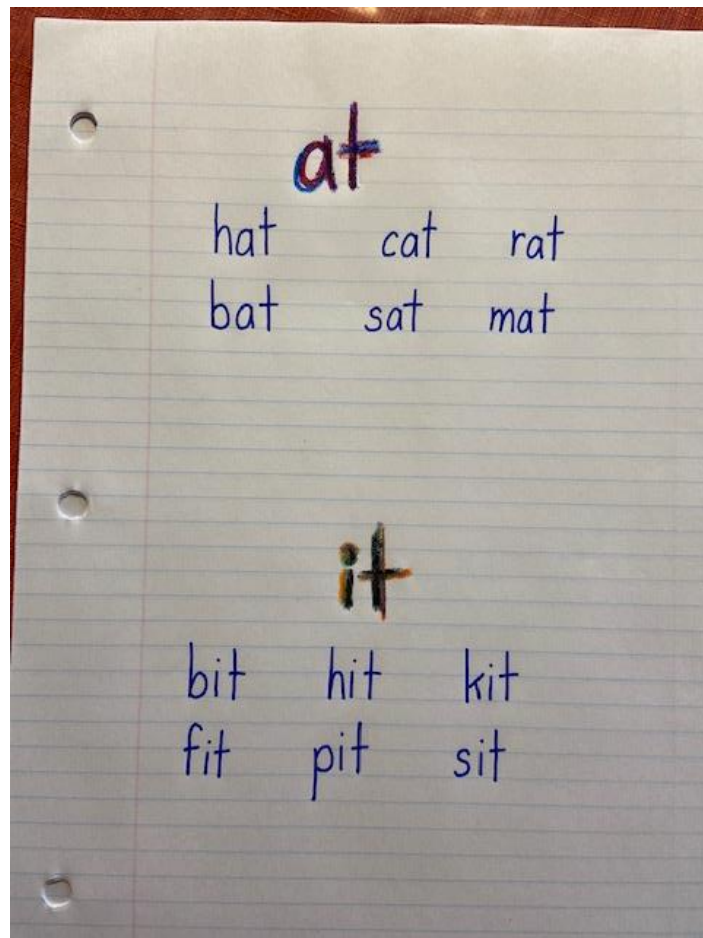 at
hat cat rat
bat sat mat
it
bit hit kit
fit pit sit